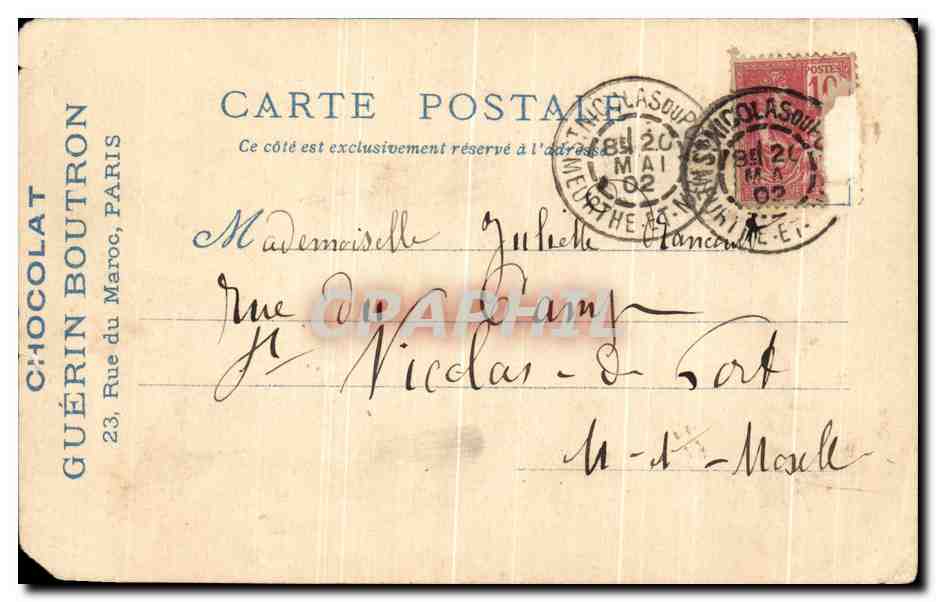 CHOCOLAT
GUÉRIN BOUTRON
23, Rue du Maroc, PARIS
CARTE POSTALE
Ce côté est exclusivement réservé à l'adresse
POSTES
10
ST NICOLAS DU P
8E 20
MAI
02
MEURTHE-ET-M
NICOLAS DU P
8E 20
MA
02
Mademoiselle Juliette
Rue du Camp
St Nicolas-d-Port
M-&-Moselle
CPAPHIL